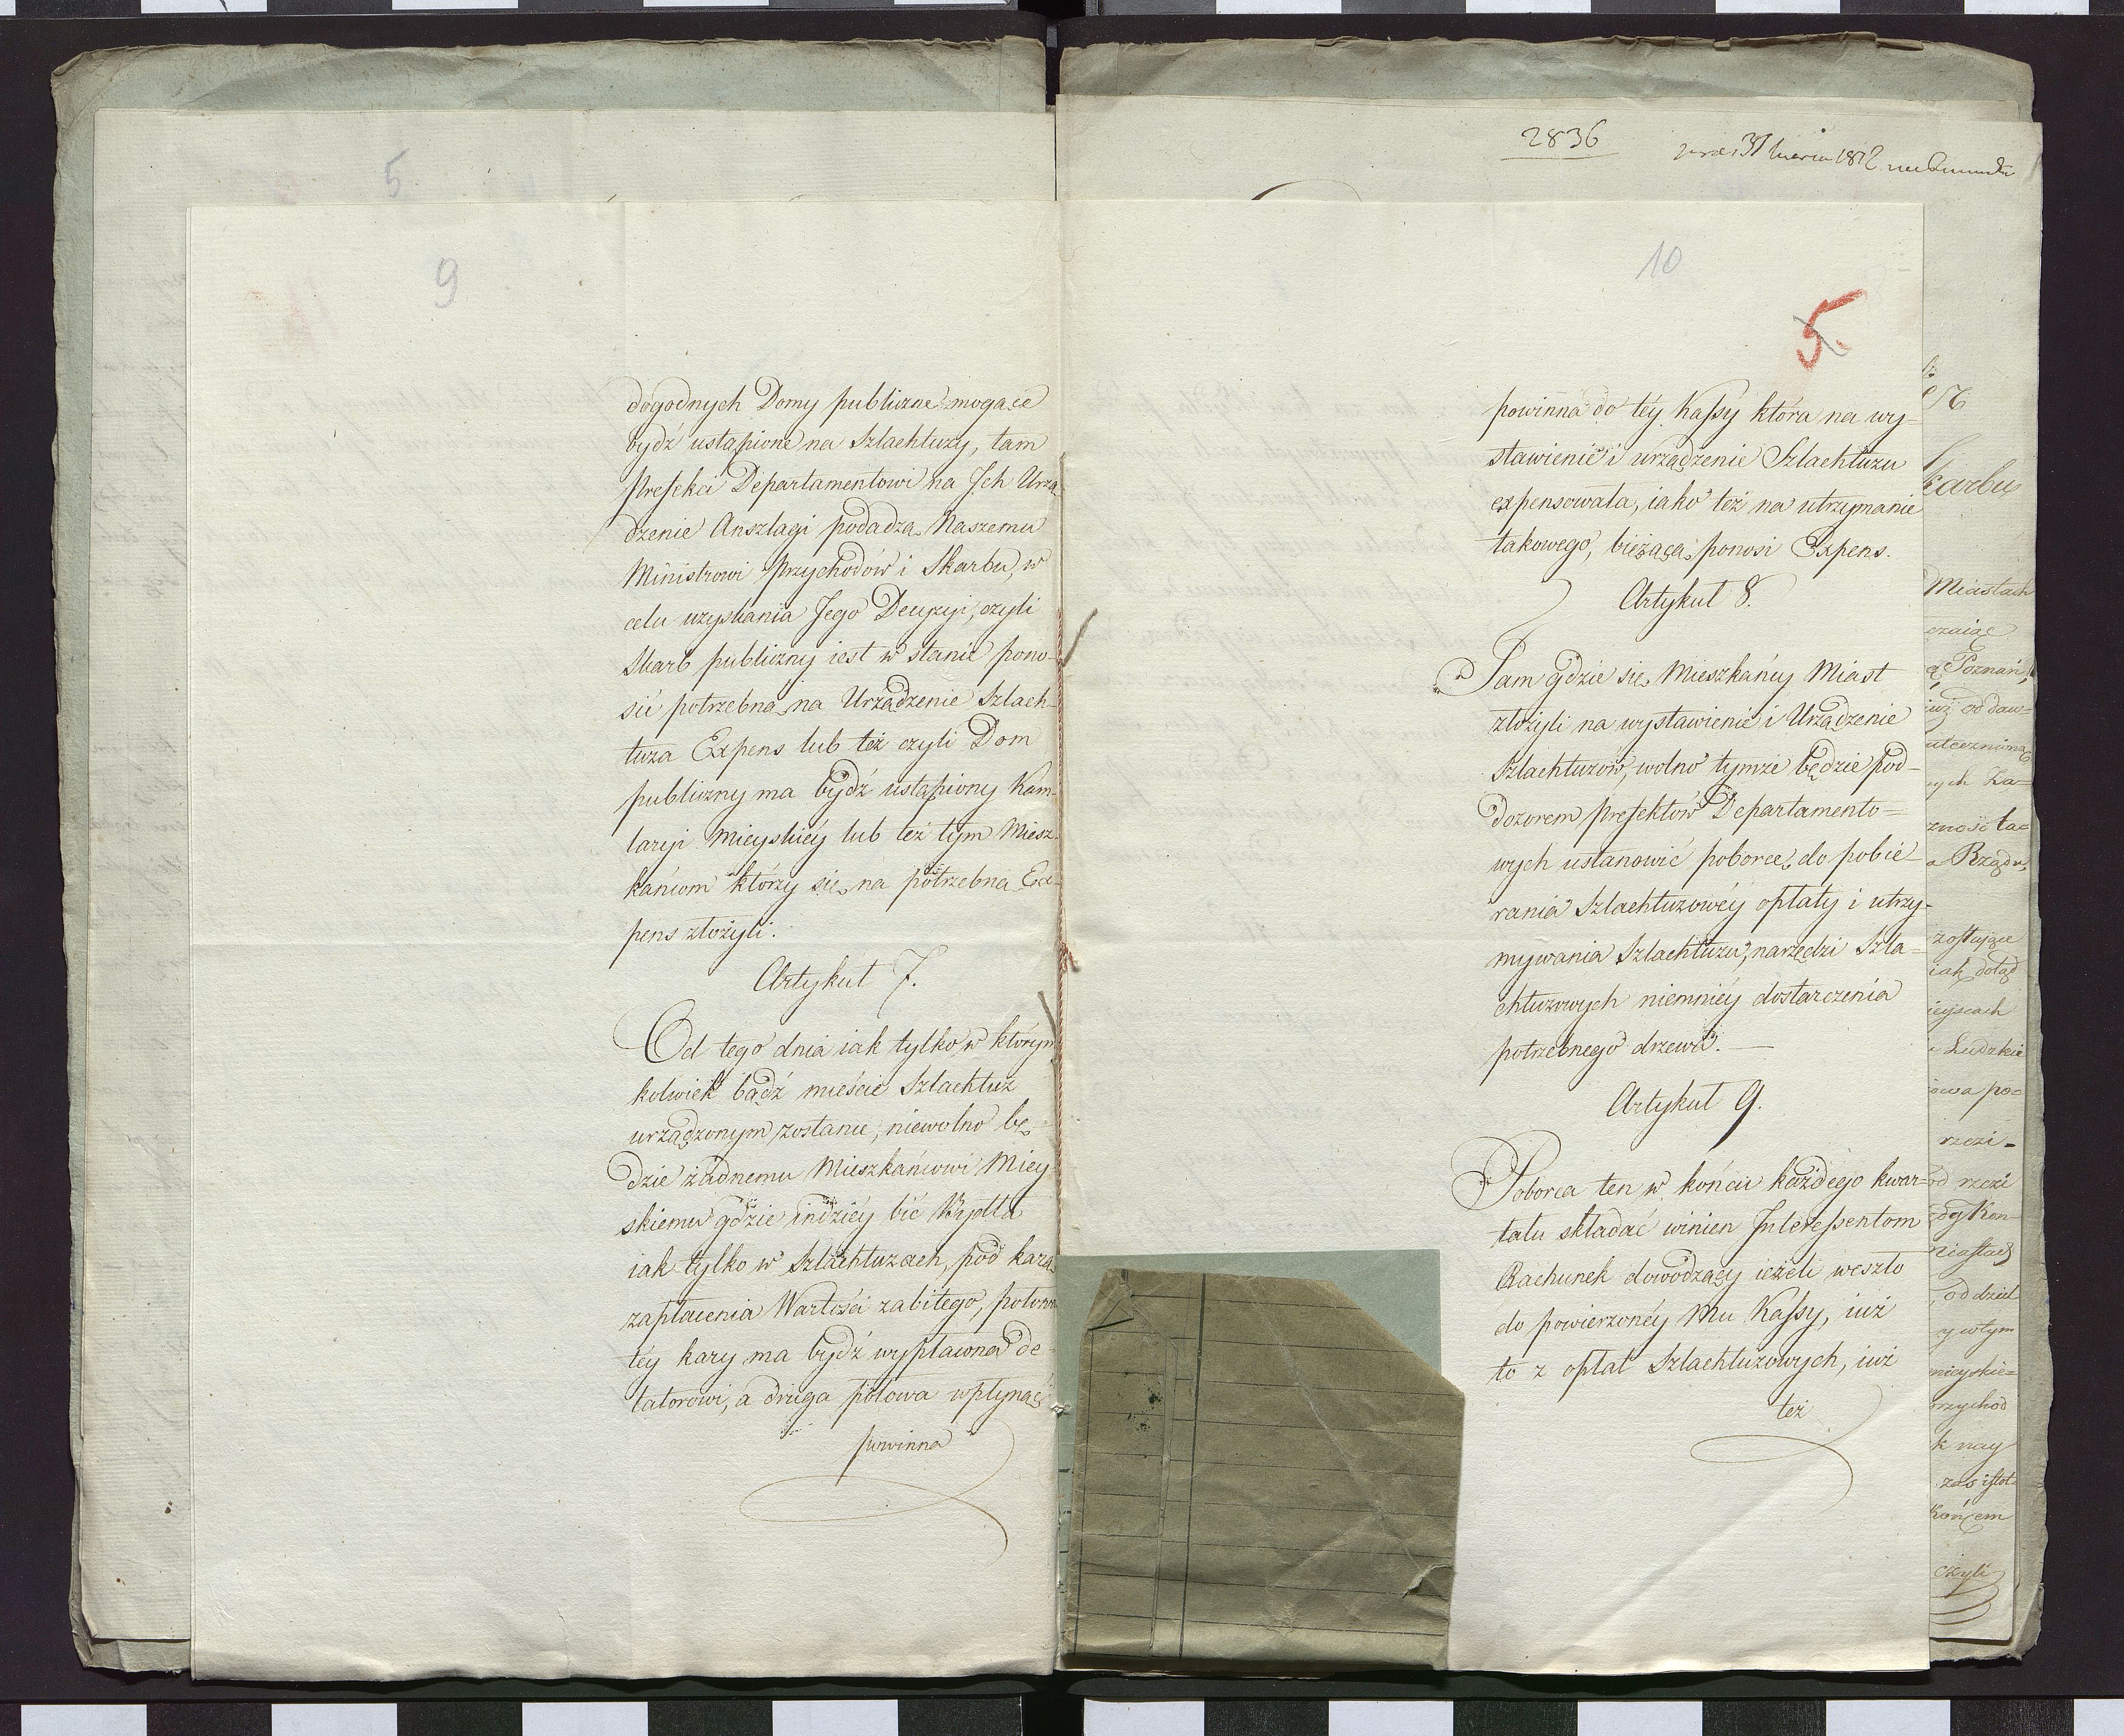 5
9
dogodnych Domy publiczne mogące
bydź ustąpione na Szlachtuzy, tam
Prefekci Departamentowi na Jch Urzą-
dzenie Anszlagi podadzą Naszemu
Ministrowi Przychodów i Skarbu, w
celu uzyskania Jego Decyzyi, czyli
Skarb publiczny iest w stanie pono-
sić potrzebną na Urządzenie Szlach-
tuza Expens lub też czyli Dom
publiczny ma bydź ustąpiony Kam-
laryi Mieyskiéy lub też tym Miesz-
kańcom którzy się na potrzebną Ex-
pens złożyli.
Artykuł 7.
Od tego dnia iak tylko w którym
kolwiek bądź mieście Szlachtuz
urządzonym zostanie, niewolno bę-
dzie żadnemu Mieszkańcowi Miey-
skiemu gdzie indziéy bić Bydła
iak tylko w Szlachtuzach, pod karą
zapłacenia Wartości zabitego, połowa
téy kary ma bydź wypłacona de-
latorowi, a druga połowa wpłynąć
powinna
2836
10
5.
powinna do téy Kassy która na wy-
stawienie i urządzenie Szlachtuzu
expensowała, iako też na utrzymanie
takowego, bieżącą ponosi Expens.
Artykuł 8.
Tam gdzie się Mieszkańcy Miast
złożyli na wystawienie i Urządzenie
Szlachtuzów, wolno tymże będzie pod
dozorem Prefektów Departamento=
wych ustanowić poborcę do pobie-
rania Szlachtuzowéy opłaty i utrzy-
mywania Szlachtuzu, narzędzi Szla=
chtuzowych niemniéy dostarczenia
potrzebnego drzewa. —
Artykuł 9.
Poborca ten w końcu każdego kwar=
tału składać winien Interessentom
Rachunek dowodzący ieżeli weszło
do powierzonéy Mu Kassy, iuż
to z opłat Szlachtuzowych, iuż
też
Skarbu
Miastach
Poznań,
od daw=
Rządu,
zostające
iak dotąd
Ludzkie
rzezi
od rzezi
oddziel
mieyskie=
przychod
k nay
zaś istot-
końcem
czyli